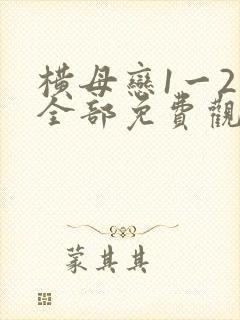 橫母戀1一2
全部免費觀
蒙其其